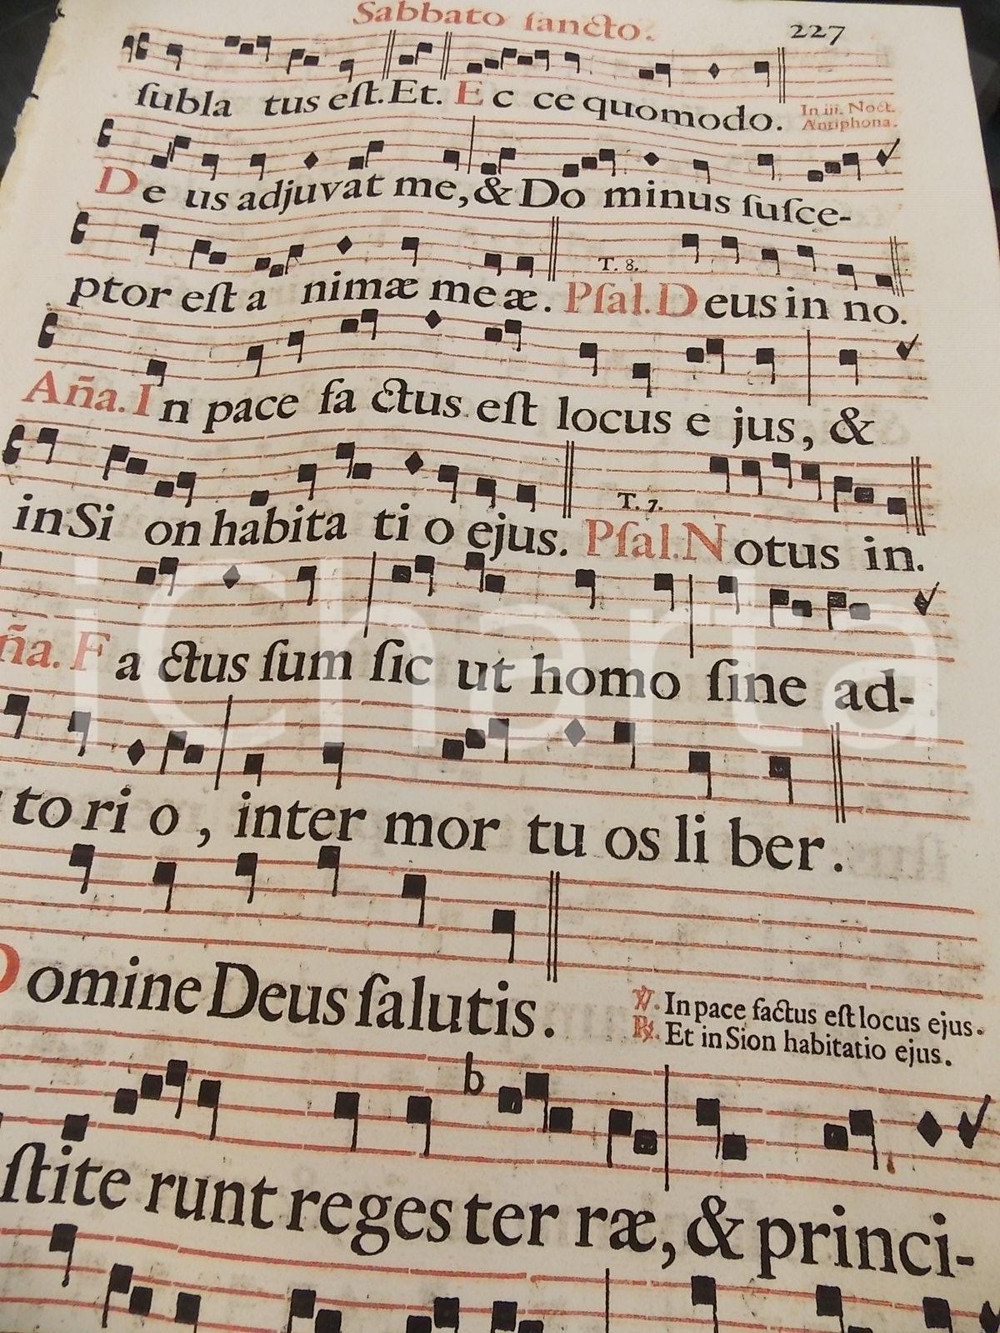 Sabbato ſancto. 227
ſubla tus eſt. Et. E c ce quomodo. In iii. Noct.
Antiphona.
De us adjuvat me, & Do minus ſuſce-
T. 8.
ptor eſt a nimæ me æ. Pſal. Deus in no.
Aña. In pace fa ctus eſt locus e jus, &
T. 7.
in Si on habita ti o ejus. Pſal. Notus in.
ña. Fa ctus ſum ſic ut homo ſine ad-
to ri o, inter mor tu os li ber.
Domine Deus ſalutis. ℣. In pace factus eſt locus ejus.
℟. Et in Sion habitatio ejus.
b
ſtite runt reges ter ræ, & princi-
iCharta